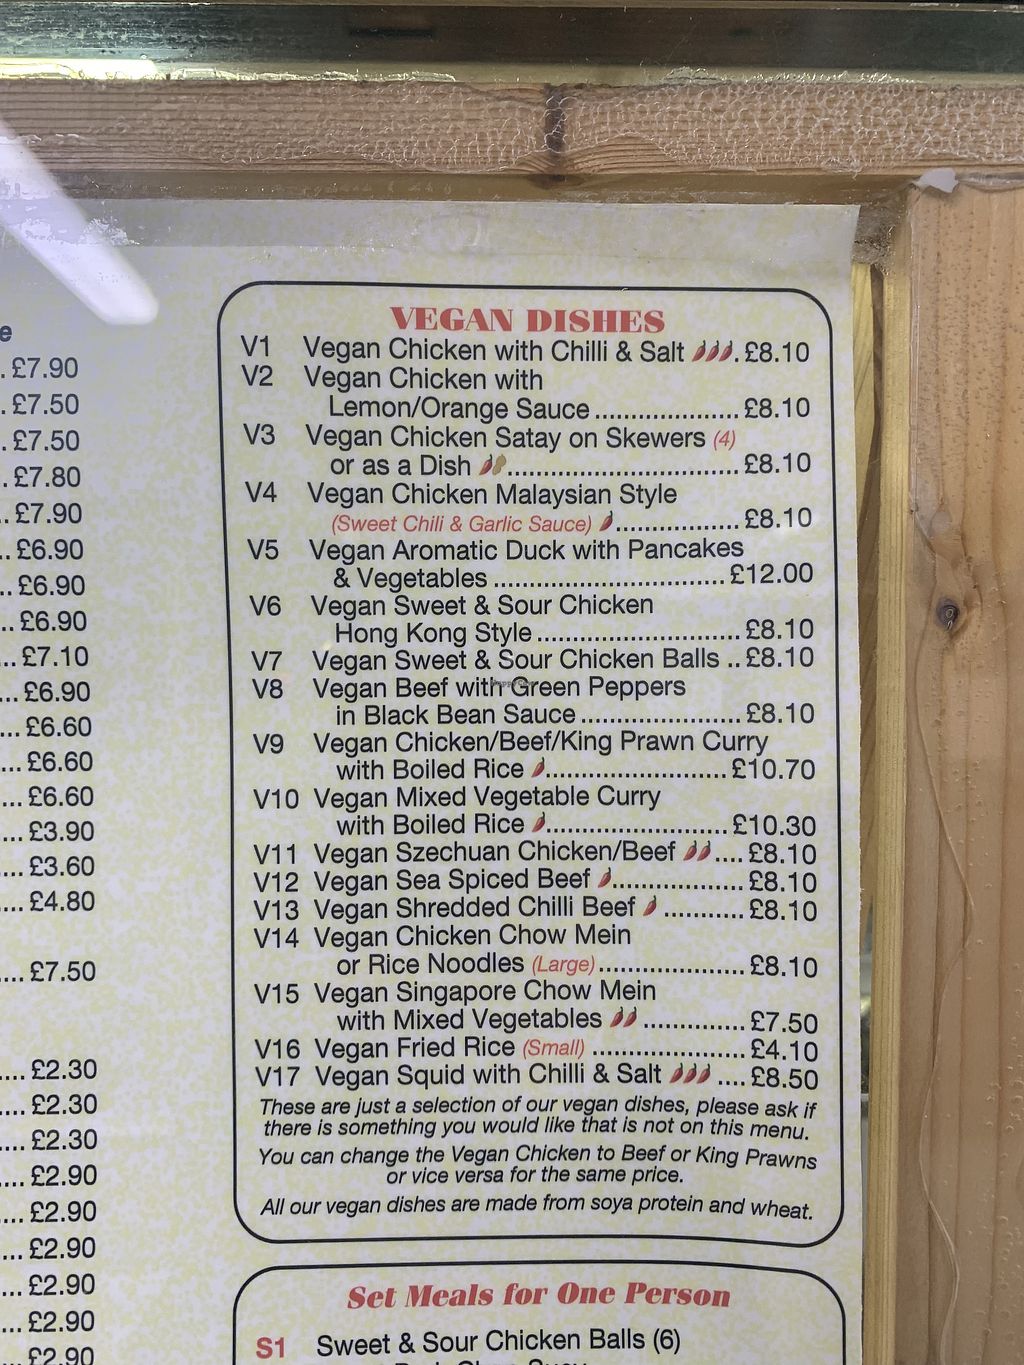 e
. £7.90
. £7.50
. £7.50
. £7.80
.. £7.90
.. £6.90
.. £6.90
... £6.90
... £7.10
... £6.90
... £6.60
... £6.60
... £6.60
... £3.90
.... £3.60
.... £4.80
.... £7.50
.... £2.30
.... £2.30
.... £2.30
.... £2.90
.... £2.90
... £2.90
... £2.90
... £2.90
... £2.90
VEGAN DISHES
V1 Vegan Chicken with Chilli & Salt . £8.10
V2 Vegan Chicken with
Lemon/Orange Sauce .................... £8.10
V3 Vegan Chicken Satay on Skewers (4)
or as a Dish ................................ £8.10
V4 Vegan Chicken Malaysian Style
(Sweet Chili & Garlic Sauce) ................. £8.10
V5 Vegan Aromatic Duck with Pancakes
& Vegetables ................................ £12.00
V6 Vegan Sweet & Sour Chicken
Hong Kong Style ............................ £8.10
V7 Vegan Sweet & Sour Chicken Balls .. £8.10
V8 Vegan Beef with Green Peppers
in Black Bean Sauce ...................... £8.10
V9 Vegan Chicken/Beef/King Prawn Curry
with Boiled Rice ......................... £10.70
V10 Vegan Mixed Vegetable Curry
with Boiled Rice ......................... £10.30
V11 Vegan Szechuan Chicken/Beef .... £8.10
V12 Vegan Sea Spiced Beef .................. £8.10
V13 Vegan Shredded Chilli Beef ........... £8.10
V14 Vegan Chicken Chow Mein
or Rice Noodles (Large) .................... £8.10
V15 Vegan Singapore Chow Mein
with Mixed Vegetables .............. £7.50
V16 Vegan Fried Rice (Small) ..................... £4.10
V17 Vegan Squid with Chilli & Salt .... £8.50
These are just a selection of our vegan dishes, please ask if
there is something you would like that is not on this menu.
You can change the Vegan Chicken to Beef or King Prawns
or vice versa for the same price.
All our vegan dishes are made from soya protein and wheat.
Set Meals for One Person
S1 Sweet & Sour Chicken Balls (6)